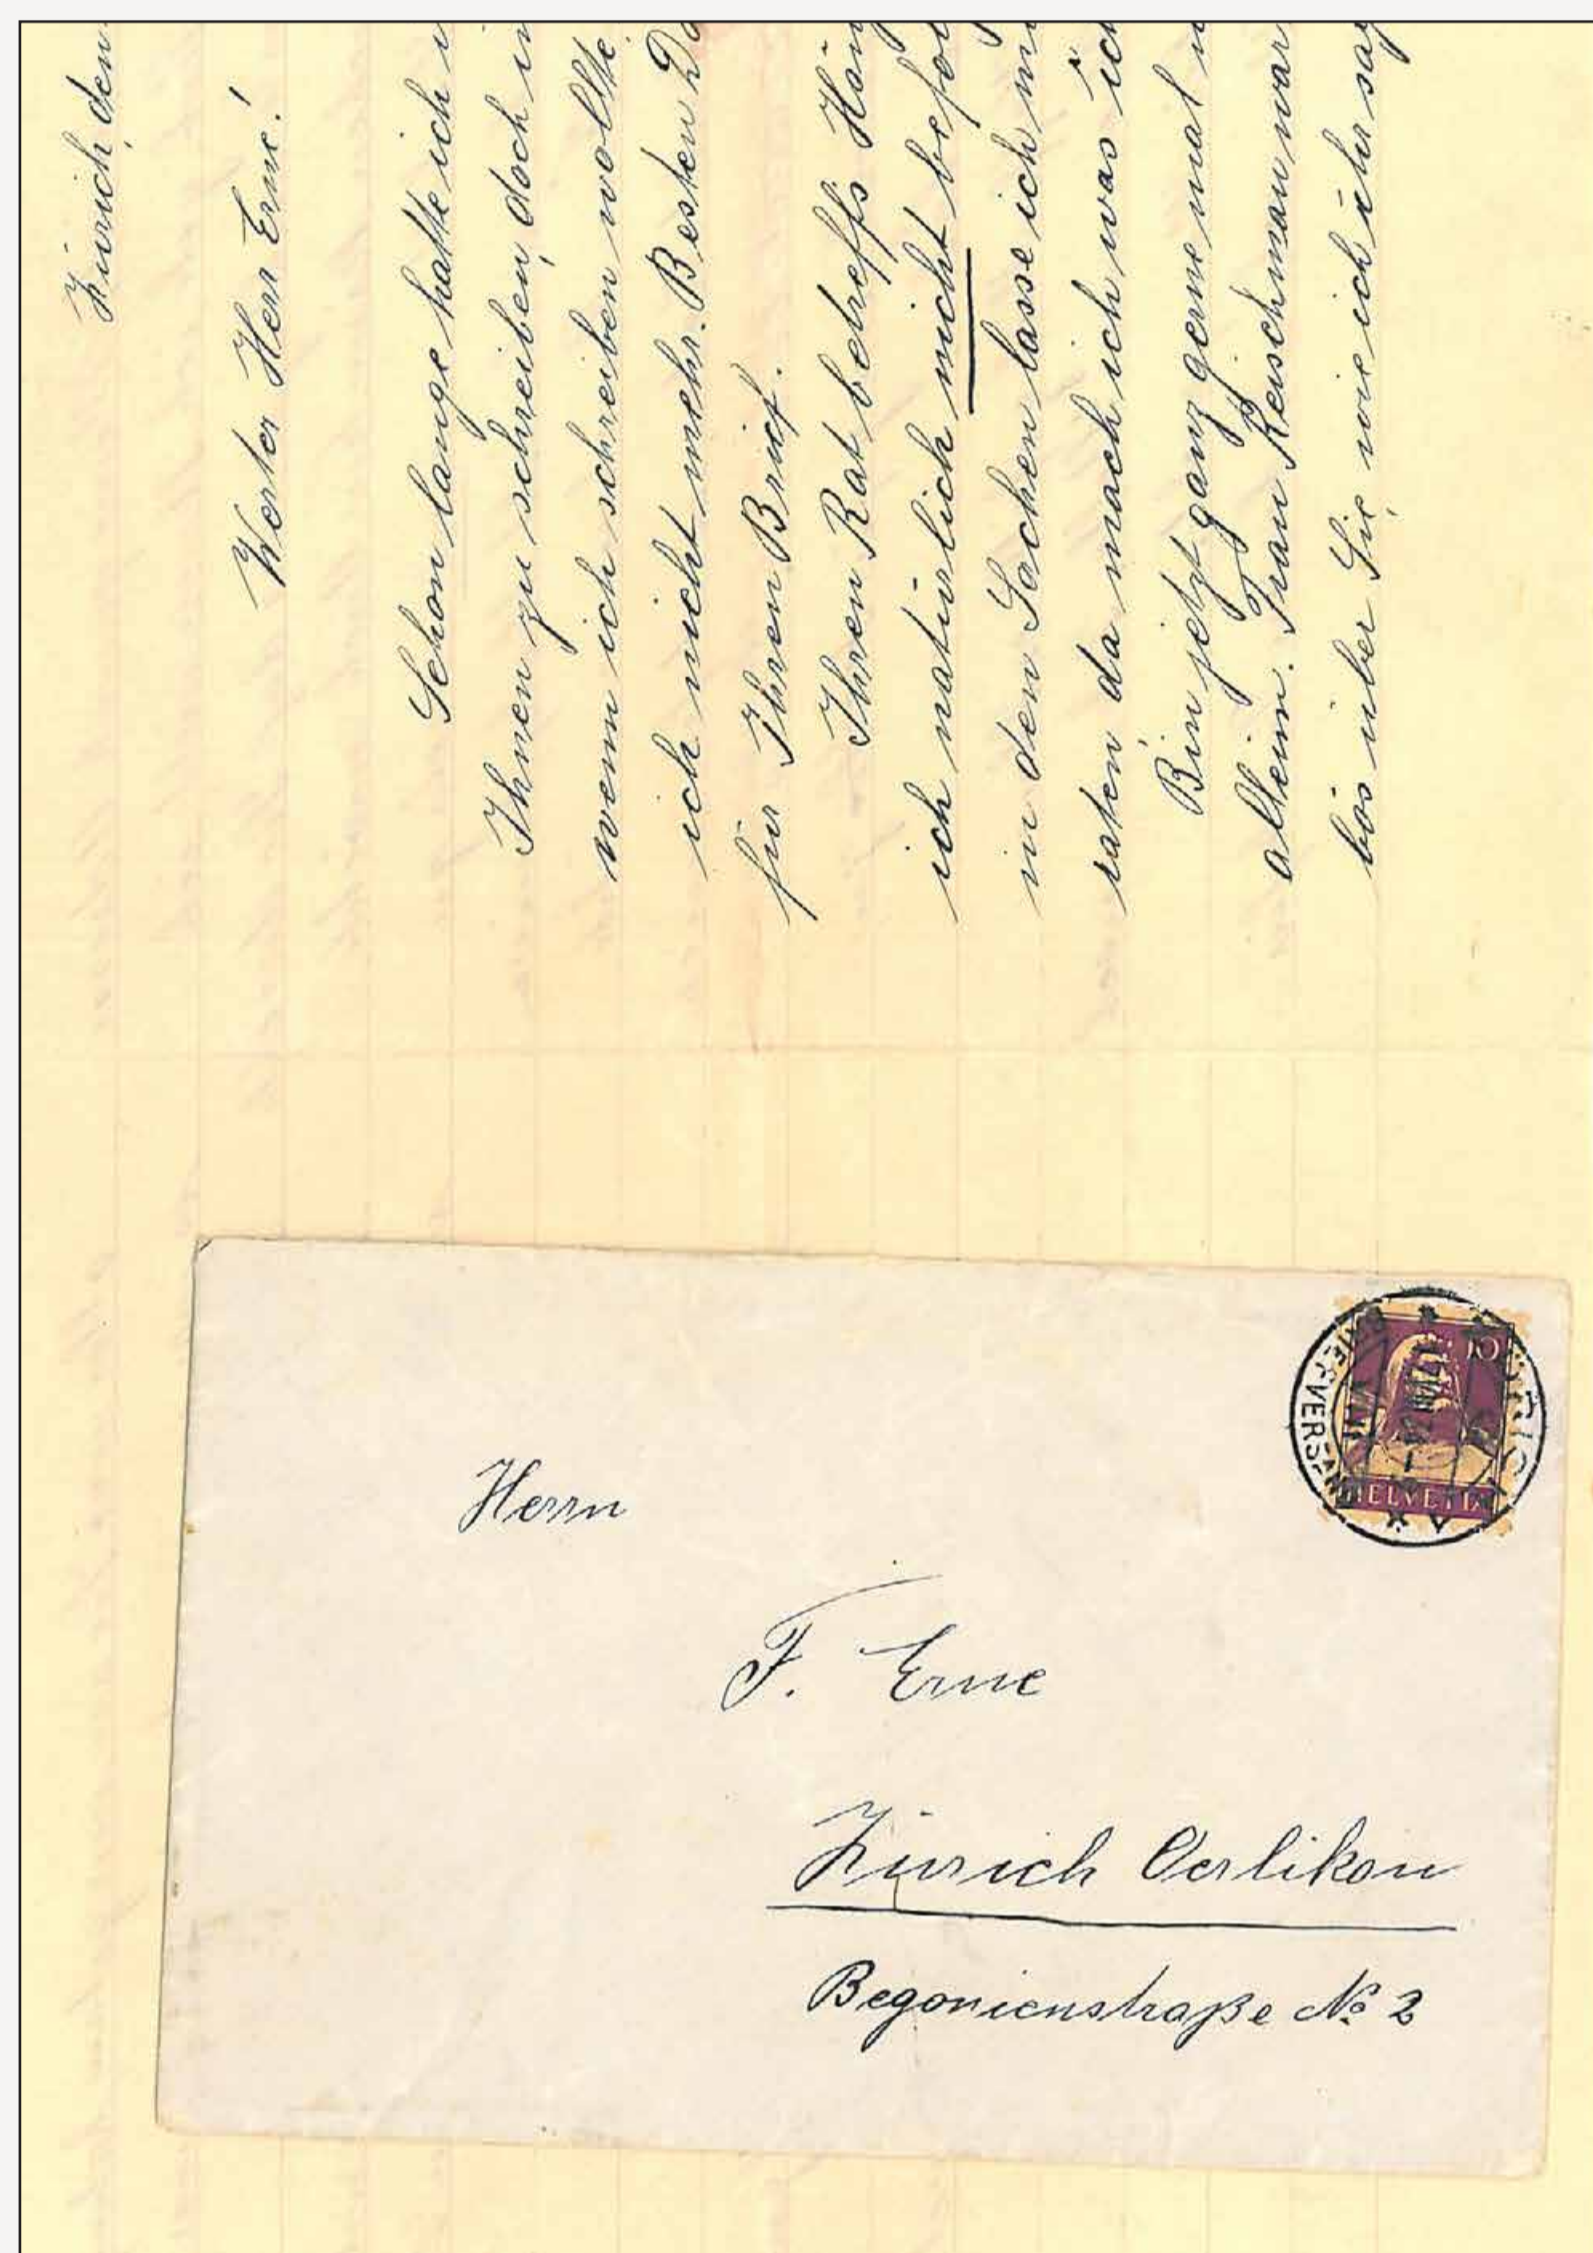 Zürich, den
Werter Herr Erne!
Schon lange hatte ich
Ihnen zu schreiben, doch
wenn ich schreiben wollte
ich nicht mehr. Besten
für Ihren Brief.
Ihren Rat betreffs
ich natürlich nicht
in den Sachen lasse ich
raten da mach ich was ich
Bin jetzt ganz gerne mal
allein. Frau Reischman war
bös über Sie wie ich ihr
Herrn
F. Erne
Zürich Oerlikon
Begonienstraße № 2
10
HELVETIA